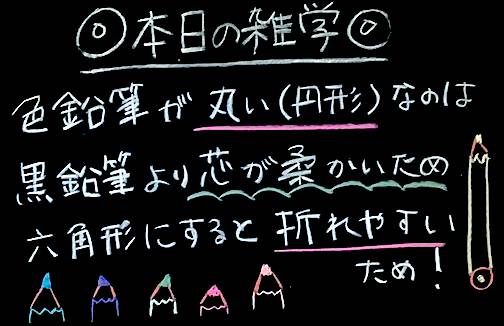 ◎本日の雑学◎
色鉛筆が丸い(円形)なのは
黒鉛筆より芯が柔かいため
六角形にすると折れやすい
ため!